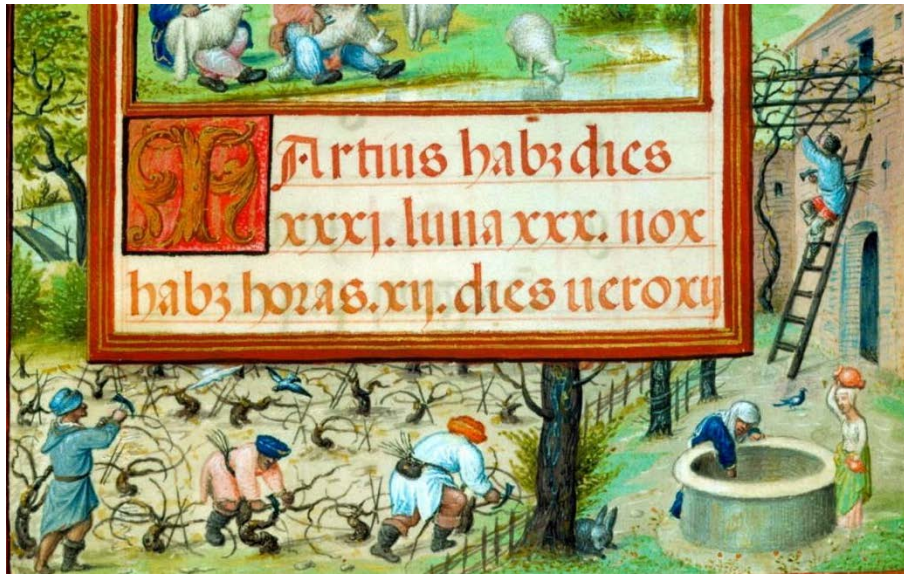 MArtius habꝫ dies
xxxj. luna xxx. nox
habꝫ horas. xij. dies uero xij